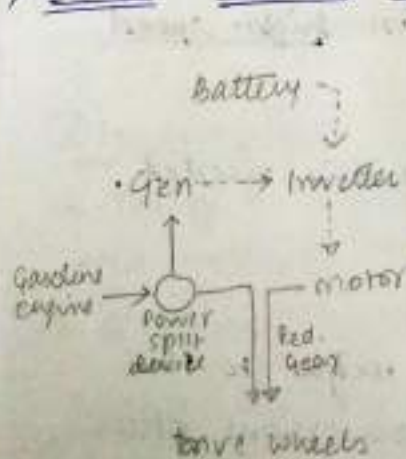 Battery
Gen
Inverter
Gasoline
engine
Power
split
device
motor
Red.
Gear
Drive wheels